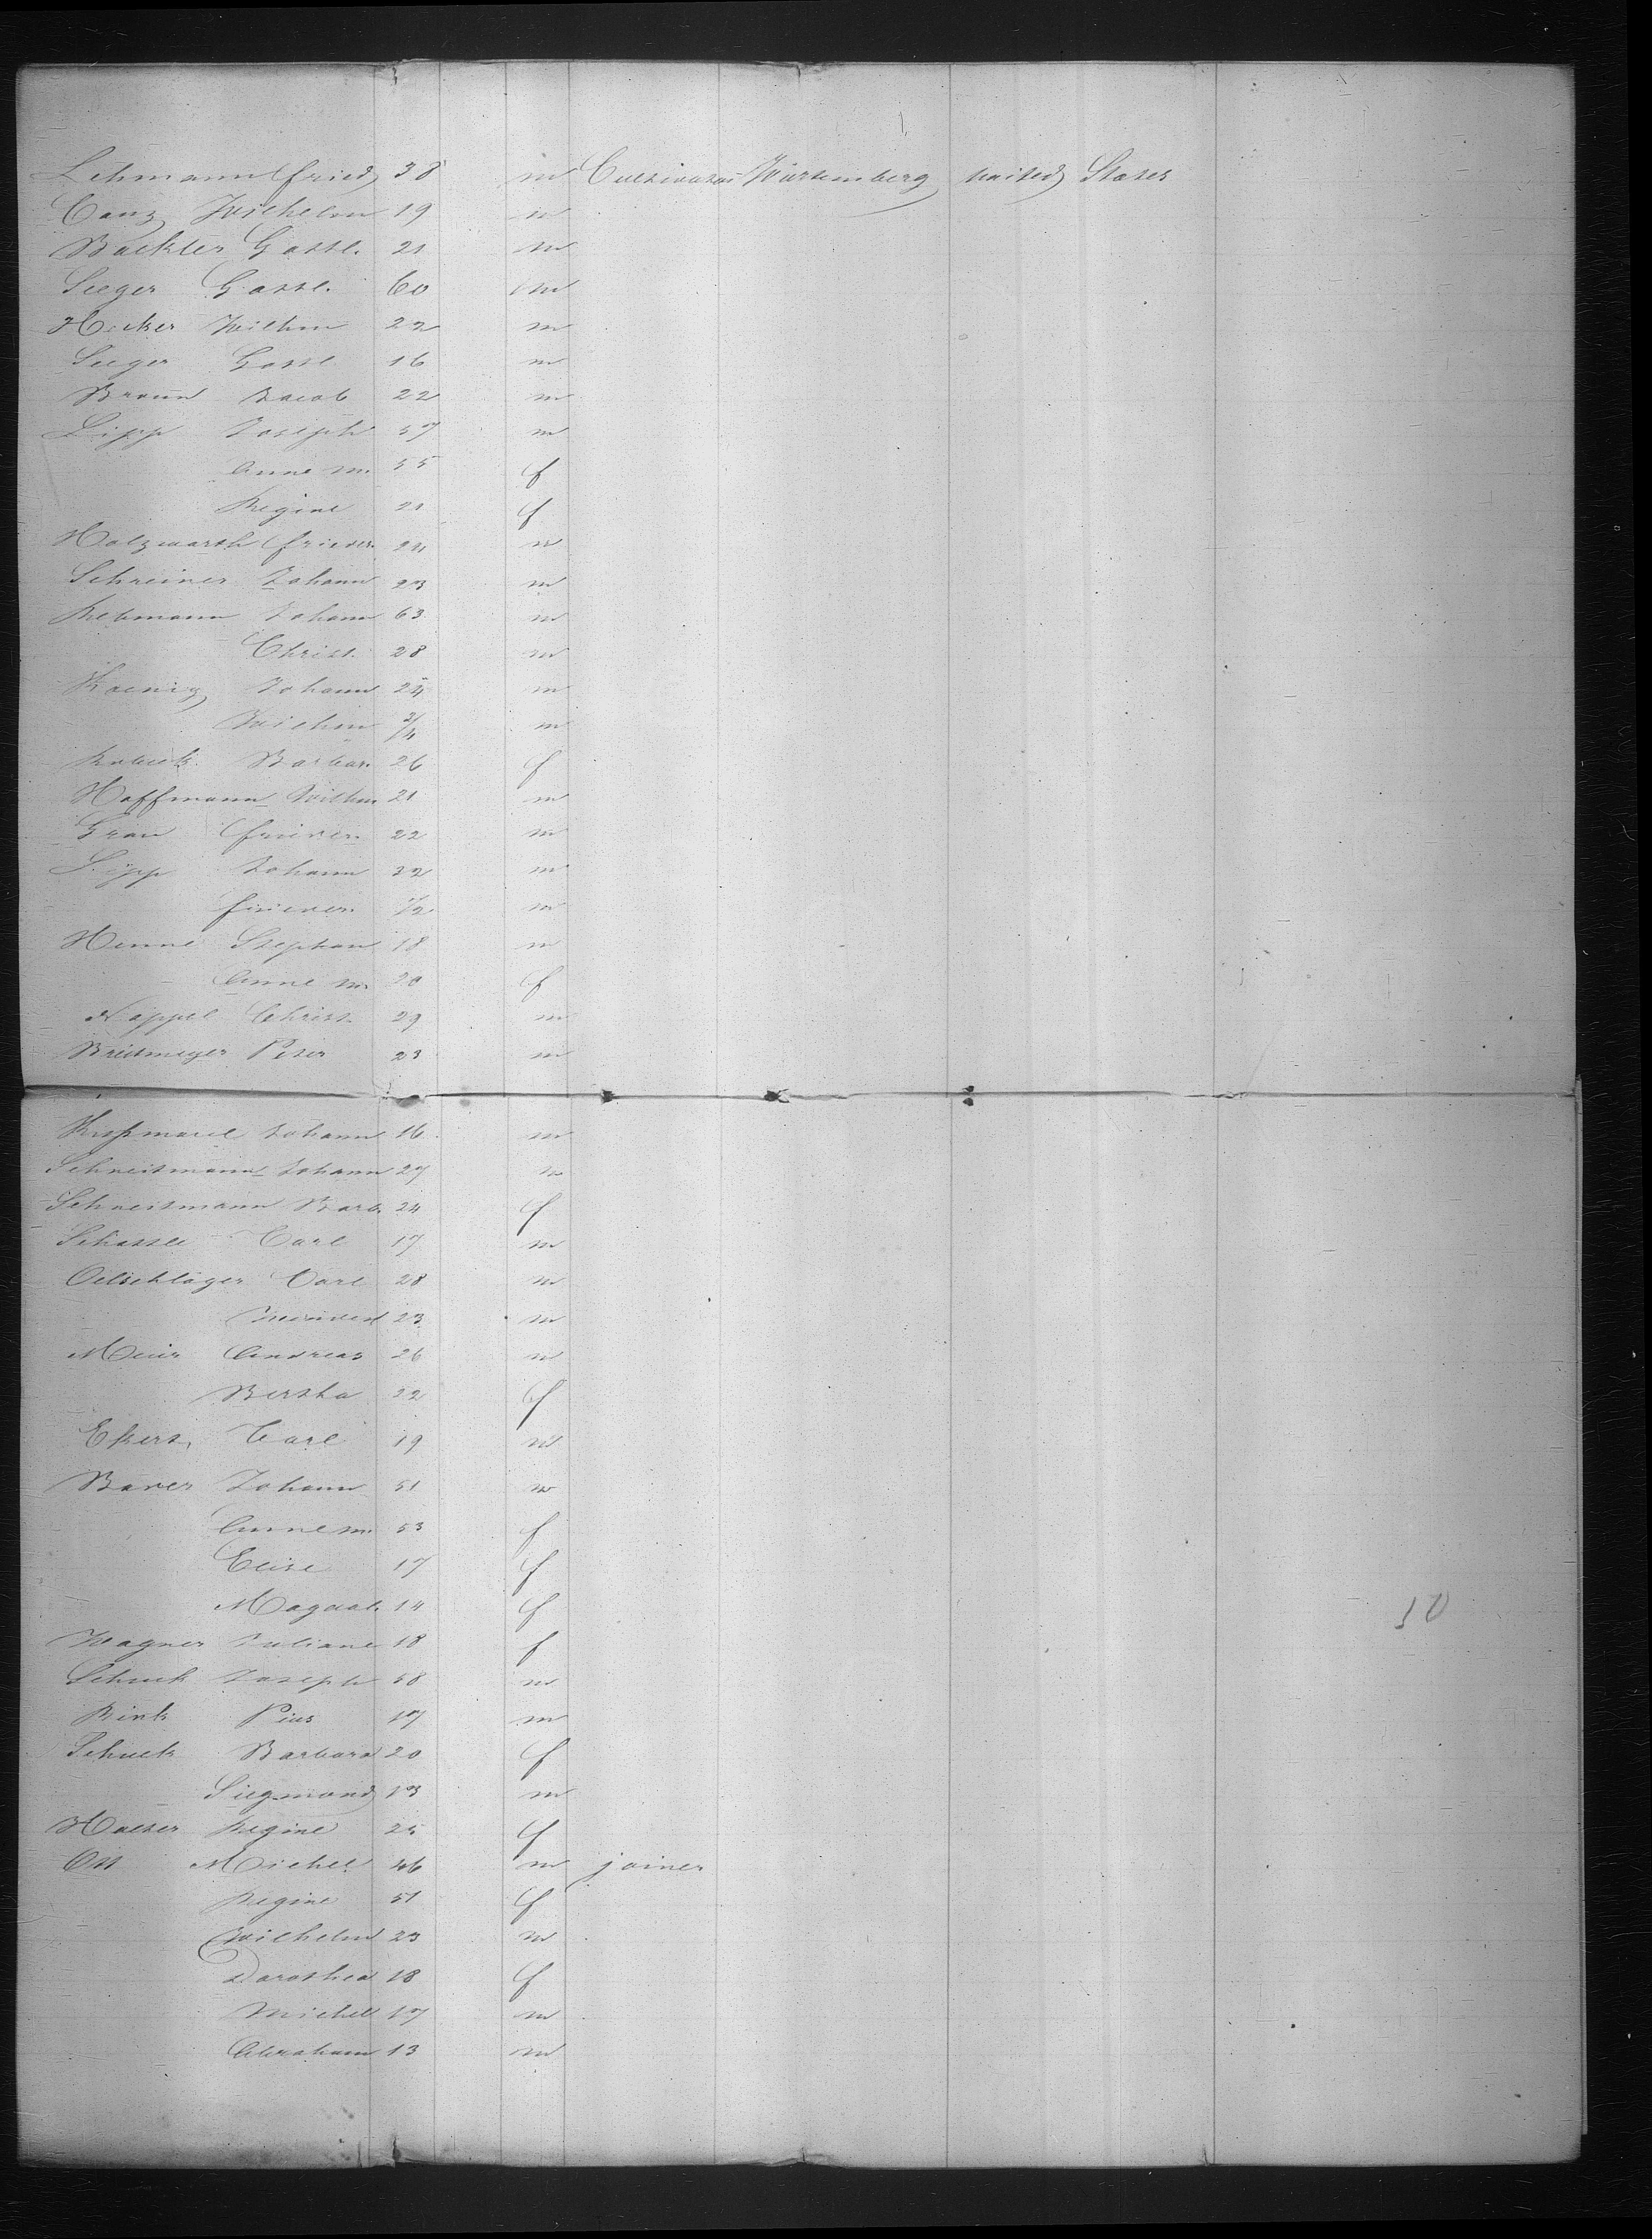 Lehmann fried 38 m Cultivator Würtemberg united States
Canz Wilhelm 19 m
Backler Gottl. 21 m
Seeger Gottl. 60 m
Hecker Wilhm 22 m
Seeger Gottl 16 m
Braun Jacob 22 m
Lipp Joseph 57 m
Anne m. 55 f
Regine 21 f
Holzwarth frieder. 24 m
Schreiner Johann 23 m
Rebmann Johann 63 m
Christ. 28 m
Koenig Johann 24 m
Wilhm 3/4 m
Barbar. 26 f
Hoffmann Wilhm 21 m
Grau frieder. 22 m
Lipp Johann 32 m
frieder. 1/2 m
Henne Stephan 18 m
Anne m. 20 f
Nappel Christ. 29 m
Breitmeyer Peter 23 m
Johann 16 m
Schneitmann Johann 27 m
Schneitmann Barb. 24 f
Carl 17 m
Oelschläger Carl 28 m
23 m
Meier Andreas 26 m
Bertha 22 f
Ekert Carl 19 m
Bauer Johann 51 m
Anne m. 53 f
Elise 17 f
Magdal. 14 f
Wagner Juliane 18 f
Schuck Joseph 58 m
Rink Pius 17 m
Schuck Barbara 20 f
Siegmond 13 m
Regine 25 f
Ott Michel 46 m joiner
Regine 51 f
Wilhelm 23 m
Dorothea 18 f
Michel 17 m
Abraham 13 m
50